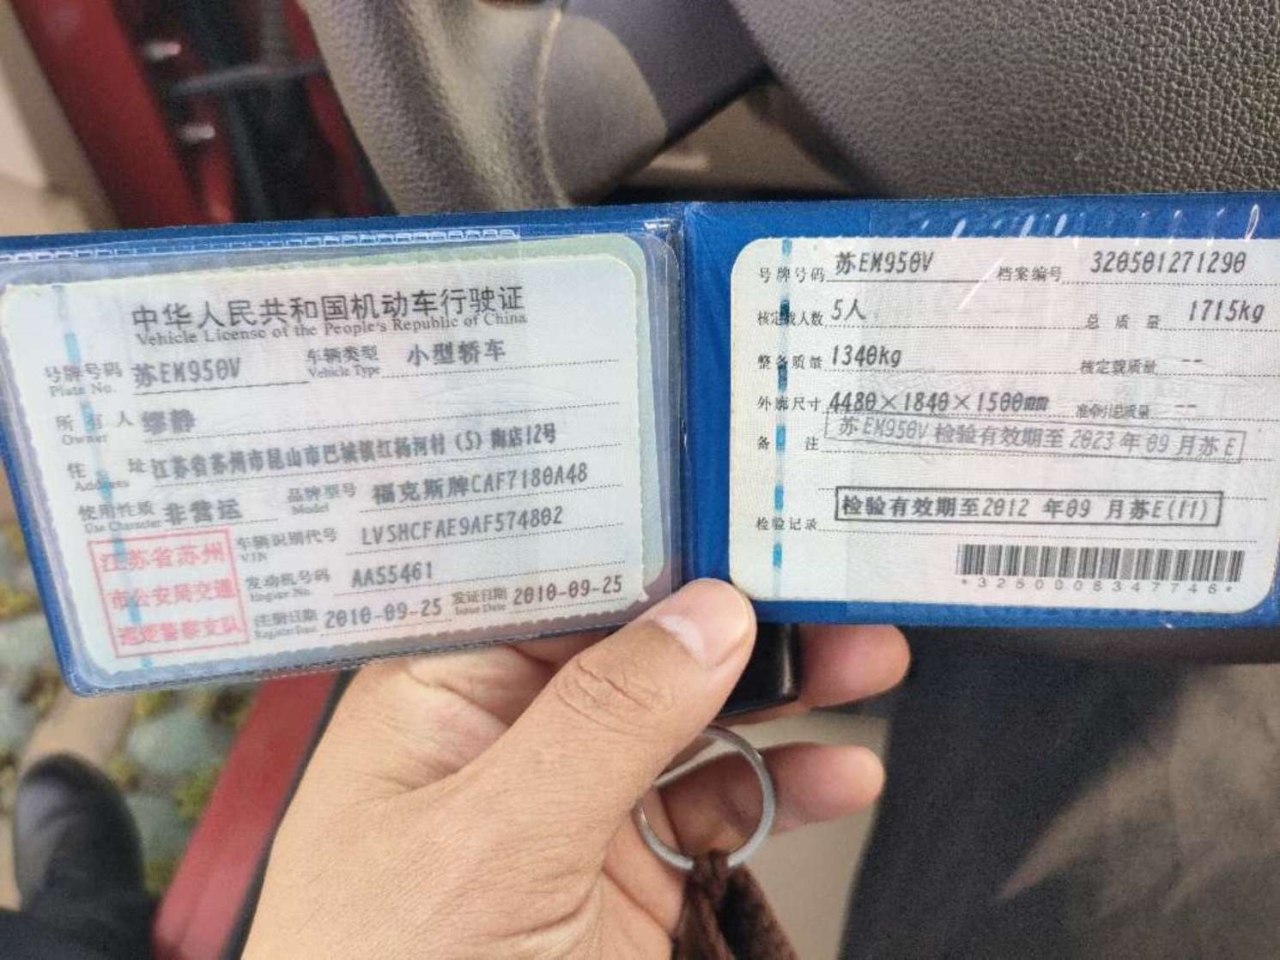 中华人民共和国机动车行驶证
Vehicle License of the People's Republic of China
号牌号码 苏EM950V 车辆类型 小型轿车
Plate No. Vehicle Type
所有人 缪静
Owner
住址 江苏省苏州市昆山市巴城镇红杨河村(5)南店12号
Address
使用性质 非营运 品牌型号 福克斯牌CAF7180A48
Use Character Model
江苏省苏州
市公安局交通
巡逻警察支队
车辆识别代号 LVSHCFAE9AF574802
VIN
发动机号码 AA55461
Engine No.
注册日期 2010-09-25 发证日期 2010-09-25
Register Date Issue Date
号牌号码 苏EM950V 档案编号 320501271290
核定载人数 5人 总质量 1715kg
整备质量 1340kg 核定载质量 --
外廓尺寸 4480×1840×1500mm 准牵引总质量 --
备注 苏EM950V 检验有效期至2023年09月苏E
检验记录 检验有效期至2012年09月苏E(11)
*3250006347746*